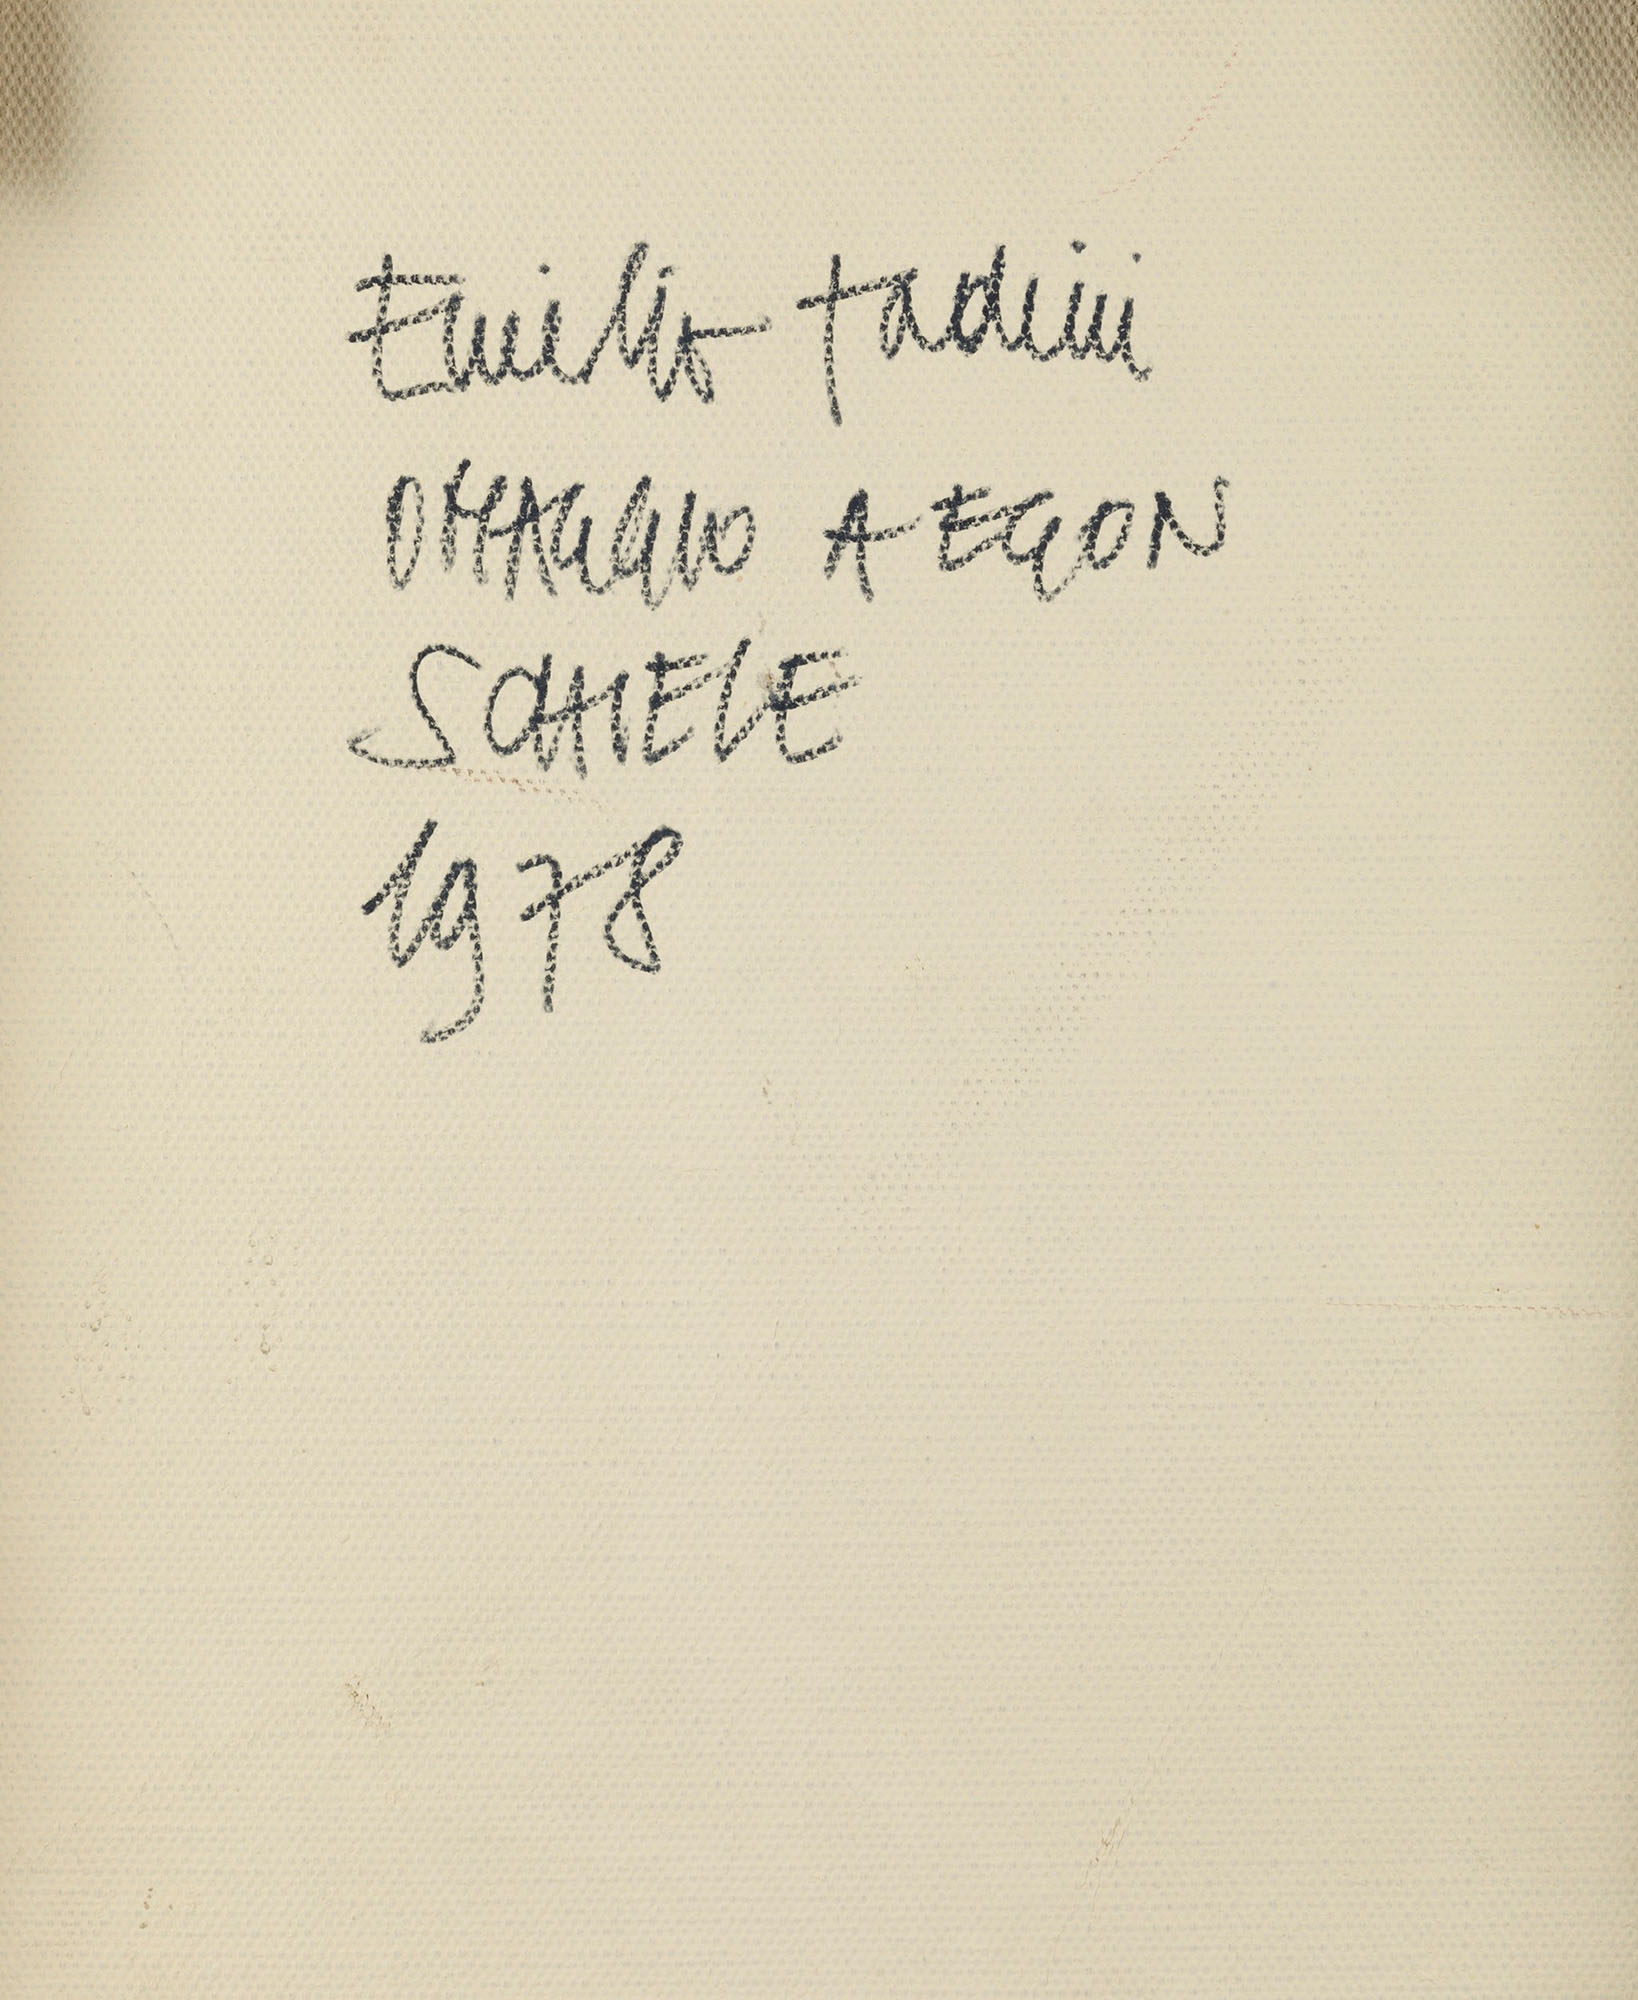 Emilio Tadini
OMAGGIO A EGON
SCHIELE
1978